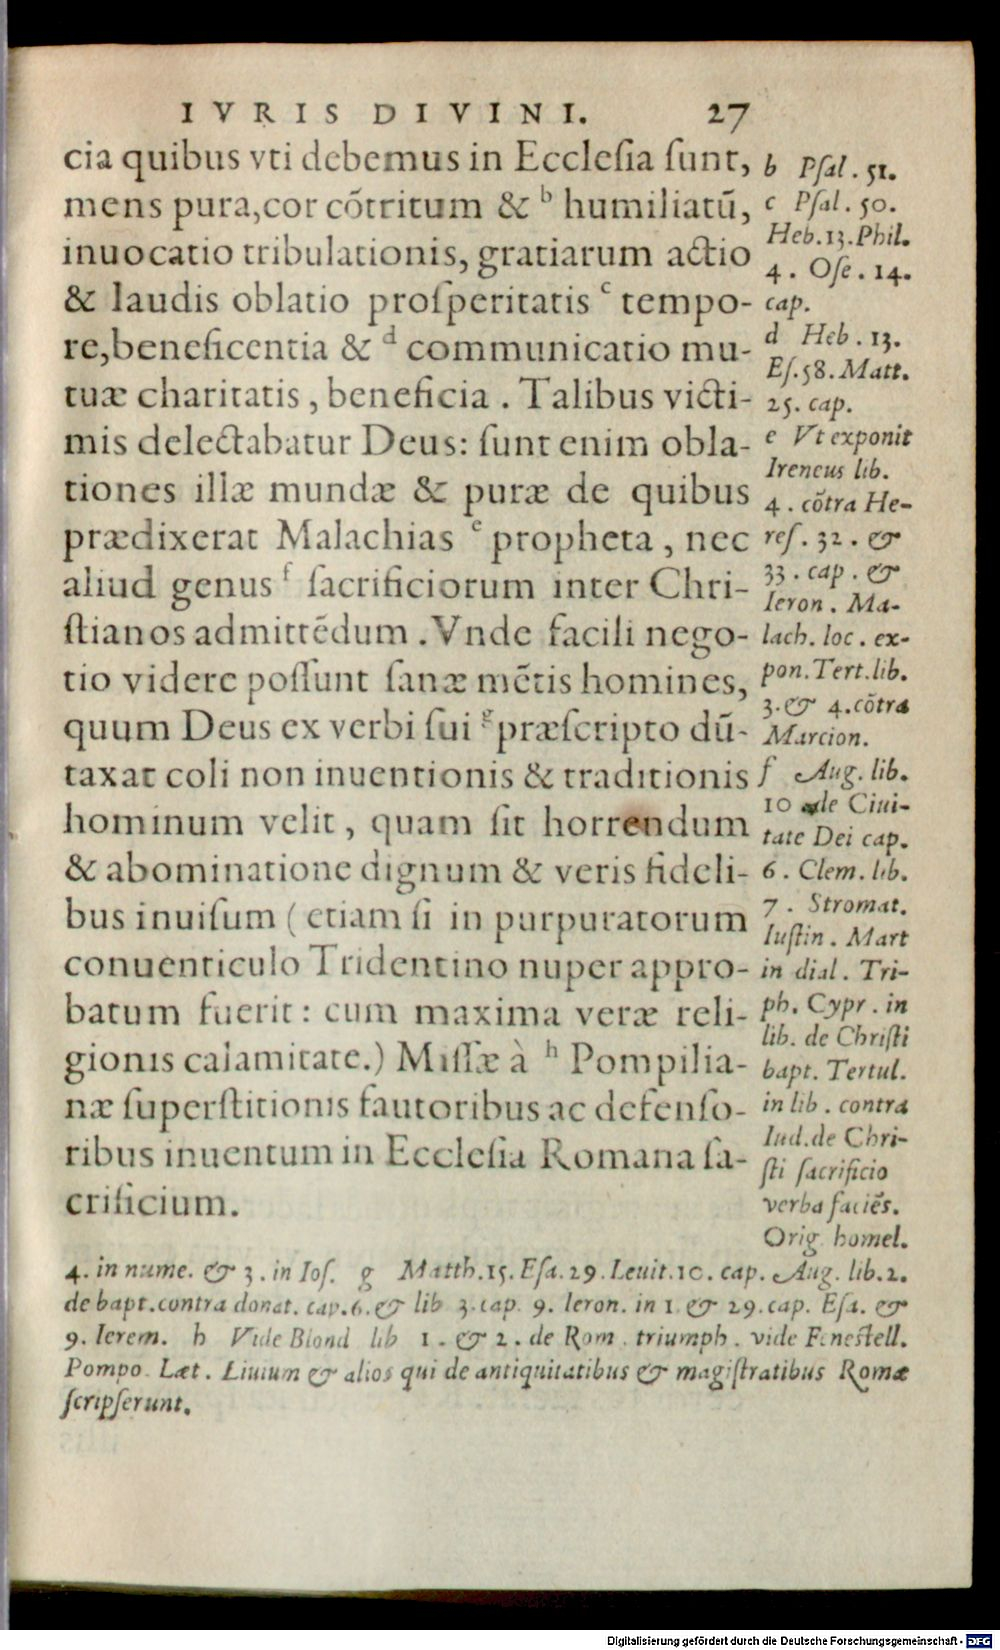 IVRIS DIVINI. 27
cia quibus vti debemus in Ecclesia sunt,
mens pura,cor cõtritum & b humiliatũ,
inuocatio tribulationis, gratiarum actio
& laudis oblatio prosperitatis c tempo-
re,beneficentia & d communicatio mu-
tuæ charitatis, beneficia. Talibus victi-
mis delectabatur Deus: sunt enim obla-
tiones illæ mundæ & puræ de quibus
prædixerat Malachias e propheta, nec
aliud genus f sacrificiorum inter Chri-
stianos admittẽdum. Vnde facili nego-
tio videre possunt sanæ mẽtis homines,
quum Deus ex verbi sui g præscripto dũ-
taxat coli non inuentionis & traditionis
hominum velit, quam sit horrendum
& abominatione dignum & veris fideli-
bus inuisum (etiam si in purpuratorum
conuenticulo Tridentino nuper appro-
batum fuerit: cum maxima veræ reli-
gionis calamitate.) Missæ à h Pompilia-
næ superstitionis fautoribus ac defenso-
ribus inuentum in Ecclesia Romana sa-
crificium.
b Psal. 51.
c Psal. 50.
Heb.13.Phil.
4. Ose. 14.
cap.
d Heb. 13.
Es.58.Matt.
25. cap.
e Vt exponit
Ireneus lib.
4. cõtra He-
res. 32. &
33. cap. &
Ieron. Ma-
lach. loc. ex-
pon.Tert.lib.
3.& 4.cõtra
Marcion.
f Aug. lib.
10 de Ciui-
tate Dei cap.
6. Clem. lib.
7. Stromat.
Iustin. Mart
in dial. Tri-
ph. Cypr. in
lib. de Christi
bapt. Tertul.
in lib. contra
Iud.de Chri-
sti sacrificio
verba faciẽs.
Orig. homel.
4. in nume. & 3. in Ios. g Matth.15. Esa.29.Leuit.10. cap. Aug. lib.2.
de bapt.contra donat. cap.6.& lib 3.cap. 9. Ieron. in 1.& 29.cap. Esa. &
9. Ierem. h Vide Blond lib 1. & 2. de Rom. triumph. vide Fenestell.
Pompo. Læt. Liuium & alios qui de antiquitatibus & magistratibus Romæ
scripserunt.
Digitalisierung gefördert durch die Deutsche Forschungsgemeinschaft - DFG